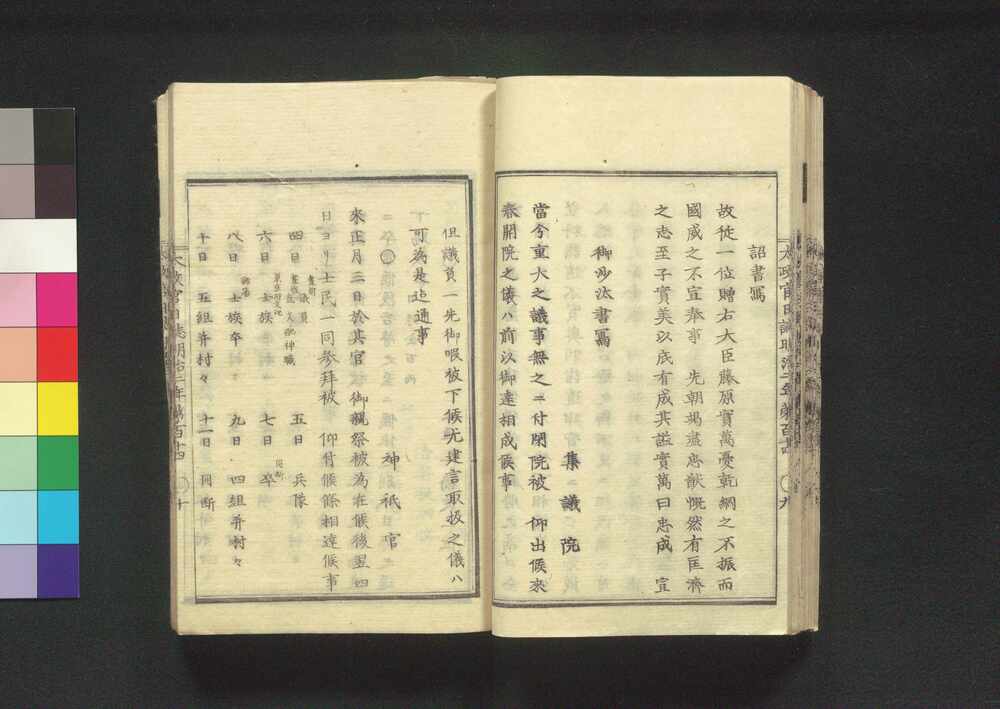 詔書寫
故従一位贈右大臣藤原實萬憂乾綱之不振而
國威之不宣奉事　先朝竭盡忠猷慨然有匡濟
之志至子實美以底有成其謚實萬曰忠成　宣
御沙汰書寫
集議院
當今重大之議事無之ニ付閉院被　仰出候來
春開院之儀ハ前以御達相成候事
但議員一先御暇被下候尤建言取扱之儀ハ
可為是迄通事
神祇官
來正月三日於其官　御親祭被為在候後翌四
日ヨリ士民一同參拜被　仰付候條相達候事
四日　神職　五日　兵隊
六日　士族　七日　卒
八日　士族卒　九日　四組并村々
十日　五組并村々　十一日　同断
太政官日誌明治二年第百十四　十